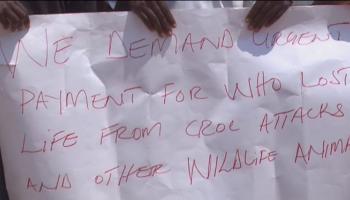 WE DEMAND URGENT
PAYMENT FOR WHO LOST
LIFE FROM CROC ATTACKS
AND OTHER WILDLIFE ANIMA